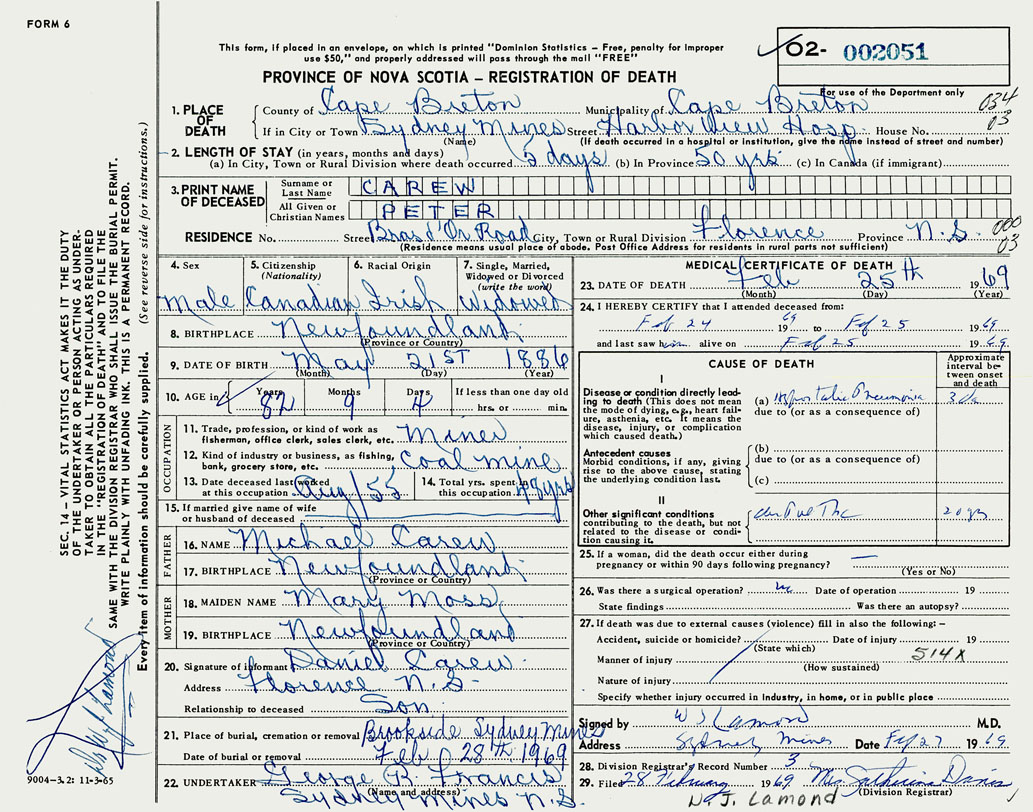 FORM 6
This form, if placed in an envelope, on which is printed "Dominion Statistics – Free, penalty for improper
use $50," and properly addressed will pass through the mail "FREE"
O2- 002051
For use of the Department only
PROVINCE OF NOVA SCOTIA – REGISTRATION OF DEATH
034
03
1. PLACE OF DEATH
County of Cape Breton Municipality of Cape Breton
If in City or Town Sydney Mines Street Harbor View Hosp. House No.
(Name) (If death occurred in a hospital or institution, give the name instead of street and number)
2. LENGTH OF STAY (in years, months and days)
(a) In City, Town or Rural Division where death occurred 2 days (b) In Province 50 yrs (c) In Canada (if immigrant)
3. PRINT NAME OF DECEASED
Surname or Last Name CAREW
All Given or Christian Names PETER
RESIDENCE No. Street Bras d'Or Road City, Town or Rural Division Florence Province N.S.
000
03
(Residence means usual place of abode. Post Office Address for residents in rural parts not sufficient)
4. Sex
Male
5. Citizenship
(Nationality)
Canadian
6. Racial Origin
Irish
7. Single, Married,
Widowed or Divorced
(write the word)
Widowed
8. BIRTHPLACE Newfoundland
(Province or Country)
9. DATE OF BIRTH May 21ST 1886
(Month) (Day) (Year)
10. AGE in Years 82 Months 9 Days 4 If less than one day old
hrs. or min.
OCCUPATION
11. Trade, profession, or kind of work as
fisherman, office clerk, sales clerk, etc. Miner
12. Kind of industry or business, as fishing,
bank, grocery store, etc. Coal mine
13. Date deceased last worked
at this occupation Aug/55
14. Total yrs. spent in
this occupation 48 yrs
15. If married give name of wife
or husband of deceased
FATHER
16. NAME Michael Carew
17. BIRTHPLACE Newfoundland
(Province or Country)
MOTHER
18. MAIDEN NAME Mary Moss
19. BIRTHPLACE Newfoundland
(Province or Country)
20. Signature of informant Daniel Carew
Address Florence N.S.
Relationship to deceased Son
21. Place of burial, cremation or removal Brookside Sydney Mines
Date of burial or removal Feb 28th 1969
22. UNDERTAKER George R. Francis
(Name and address)
Sydney Mines N.S.
MEDICAL CERTIFICATE OF DEATH
23. DATE OF DEATH Feb 25th 1969
(Month) (Day) (Year)
24. I HEREBY CERTIFY that I attended deceased from:
Feb 24 1969 to Feb 25 1969
and last saw him alive on Feb 25 1969
CAUSE OF DEATH
Approximate
interval be-
tween onset
and death
I
Disease or condition directly lead-
ing to death (This does not mean
the mode of dying, e.g., heart fail-
ure, asthenia, etc. It means the
disease, injury, or complication
which caused death.)
(a) Hypostatic Pneumonia
due to (or as a consequence of)
Antecedent causes
Morbid conditions, if any, giving
rise to the above cause, stating
the underlying condition last.
(b)
due to (or as a consequence of)
(c)
II
Other significant conditions
contributing to the death, but not
related to the disease or condi-
tion causing it.
20 yrs
25. If a woman, did the death occur either during
pregnancy or within 90 days following pregnancy?
(Yes or No)
26. Was there a surgical operation? no Date of operation 19
State findings Was there an autopsy?
27. If death was due to external causes (violence) fill in also the following: –
Accident, suicide or homicide? Date of injury 19
(State which)
Manner of injury 514X
(How sustained)
Nature of injury
Specify whether injury occurred in Industry, in home, or in public place
Signed by W J Lamond M.D.
Address Sydney Mines Date Feb 27 1969
28. Division Registrar's Record Number 3
29. Filed 28 February 1969 Mrs. Catherine Davis
(Division Registrar)
W. J. Lamond
SEC. 14 – VITAL STATISTICS ACT MAKES IT THE DUTY
OF THE UNDERTAKER OR PERSON ACTING AS UNDER-
TAKER TO OBTAIN ALL THE PARTICULARS REQUIRED
IN THE "REGISTRATION OF DEATH" AND TO FILE THE
SAME WITH THE DIVISION REGISTRAR WHO SHALL ISSUE THE BURIAL PERMIT.
WRITE PLAINLY WITH UNFADING INK. THIS IS A PERMANENT RECORD.
Every item of information should be carefully supplied. (See reverse side for instructions.)
W J Lamond
9004-3.2: 11-3-65